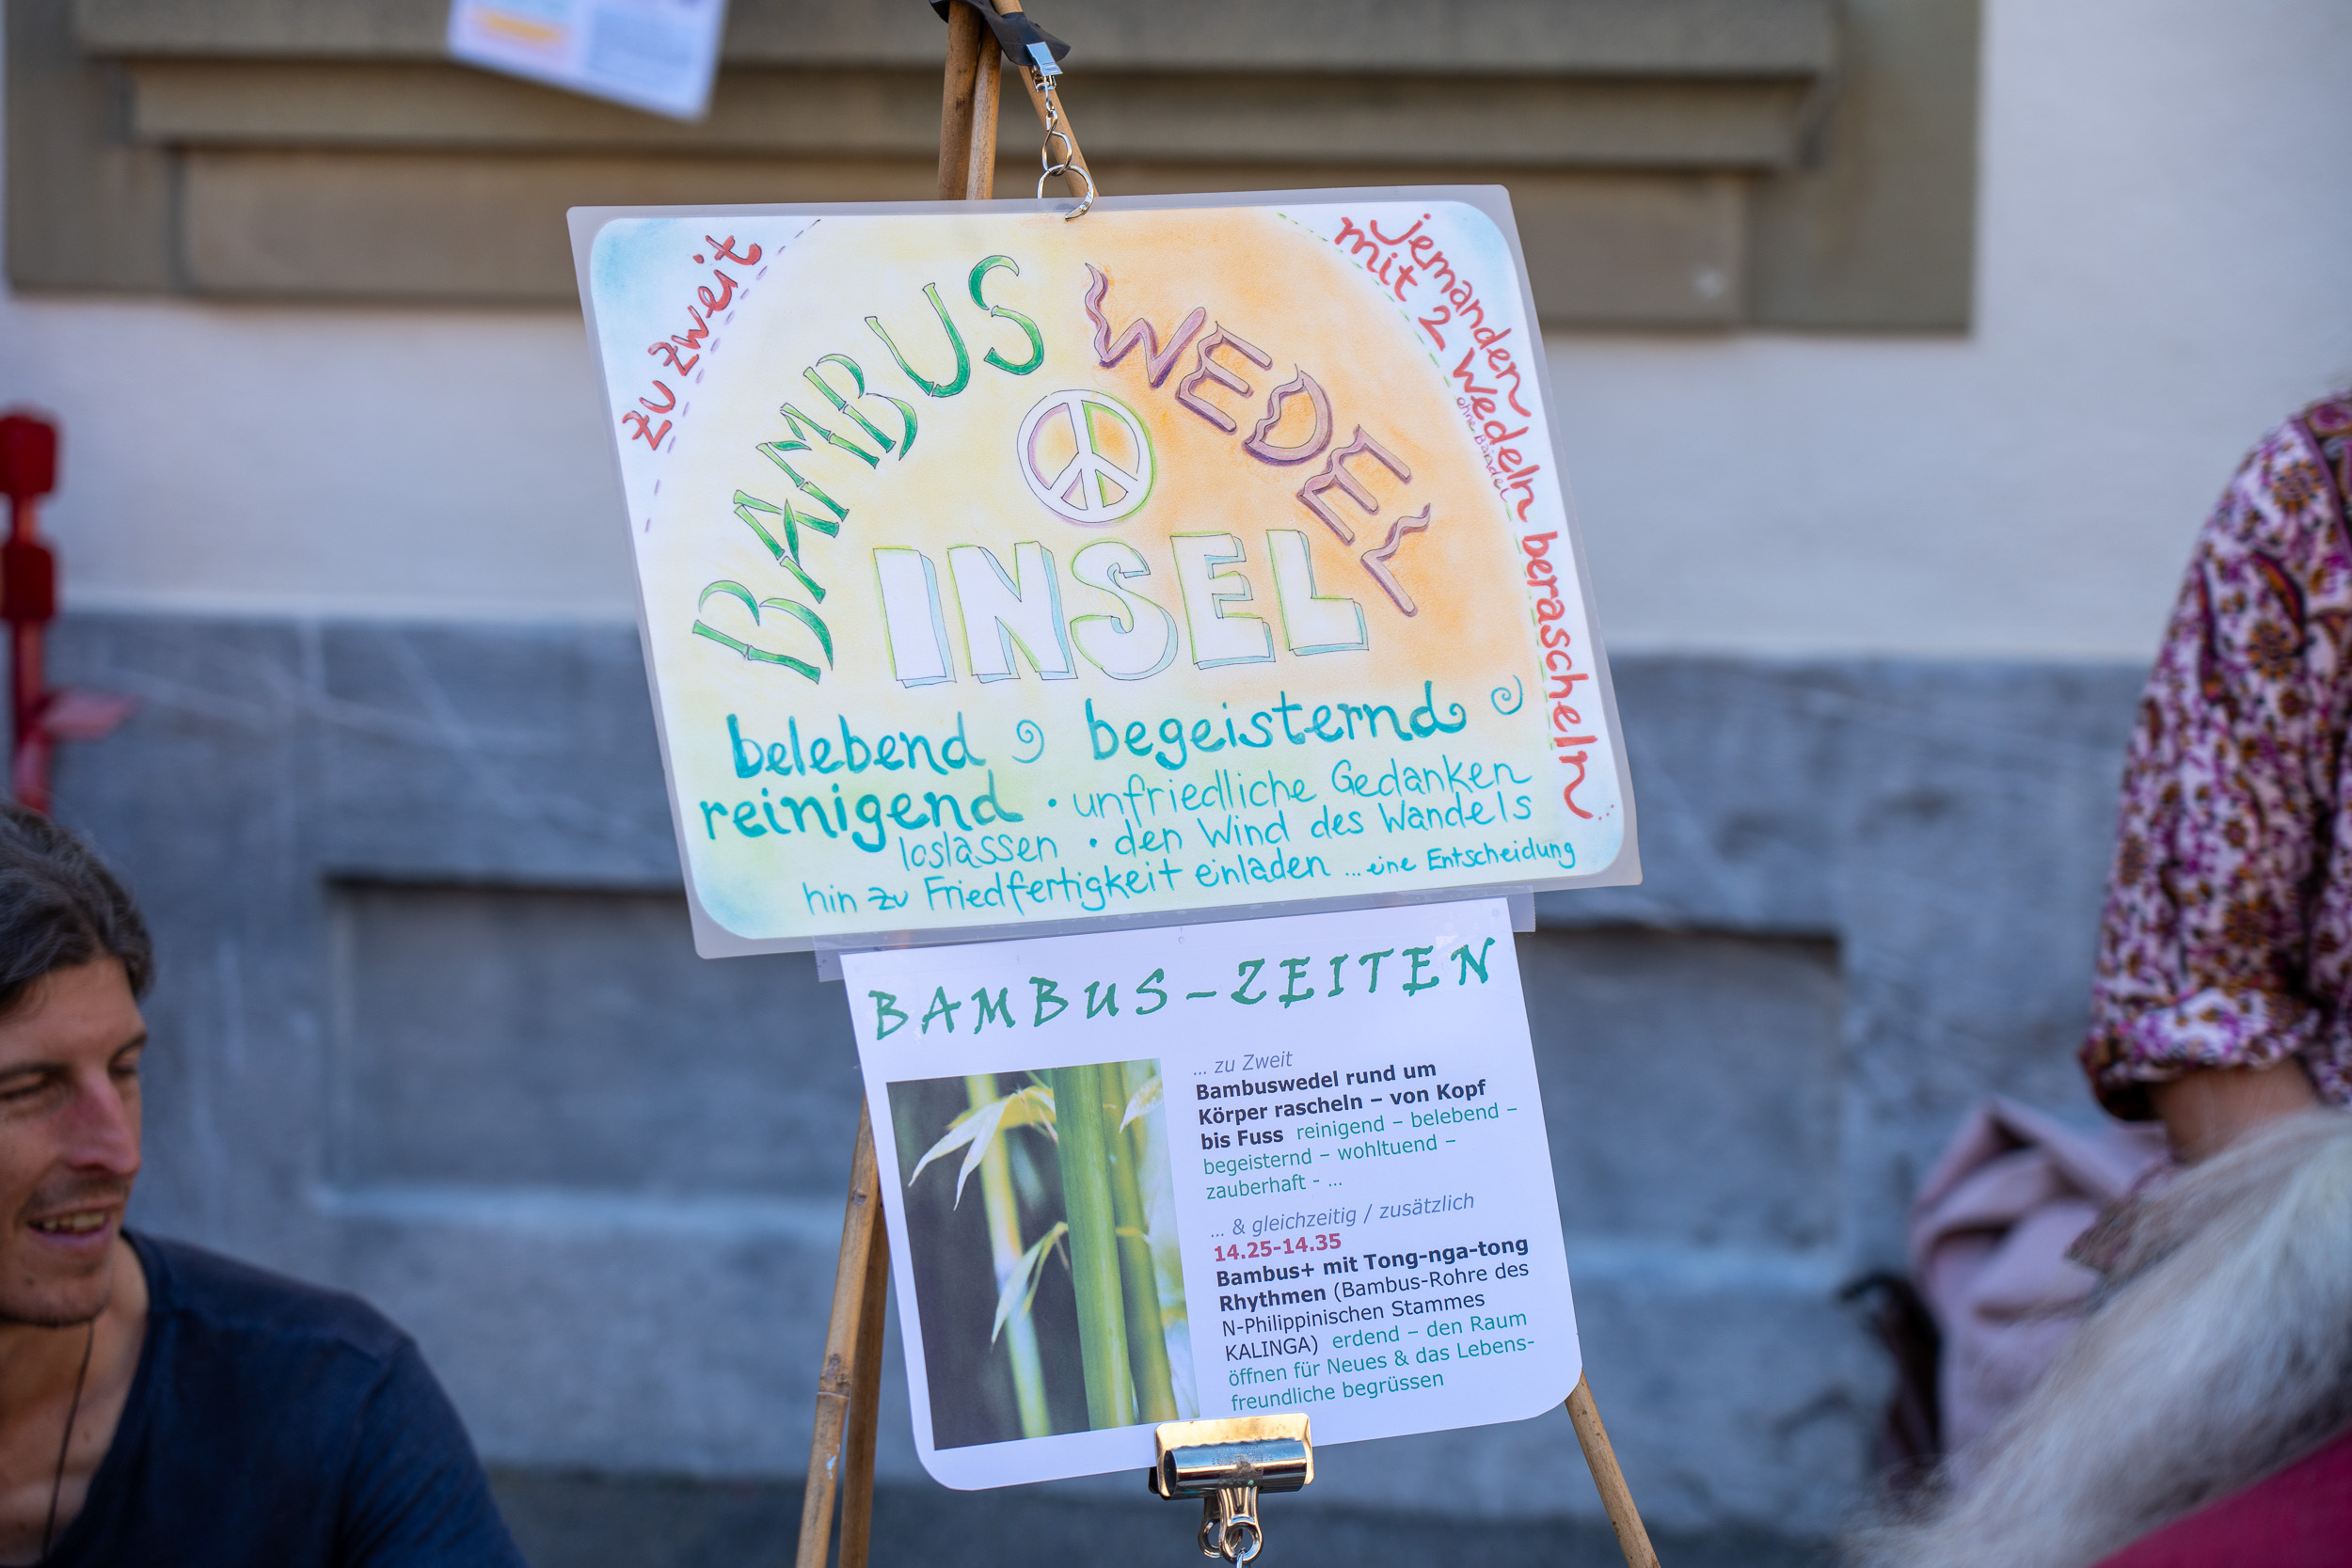 zu zweit
jemanden
mit 2 Wedeln beräscheln
ohne Bändel
BAMBUS WEDEL
INSEL
belebend begeisternd
reinigend • unfriedliche Gedanken
loslassen • den Wind des Wandels
hin zu Friedfertigkeit einladen ... eine Entscheidung
BAMBUS-ZEITEN
... zu Zweit
Bambuswedel rund um
Körper rascheln – von Kopf
bis Fuss reinigend – belebend –
begeisternd – wohltuend –
zauberhaft - ...
... & gleichzeitig / zusätzlich
14.25-14.35
Bambus+ mit Tong-nga-tong
Rhythmen (Bambus-Rohre des
N-Philippinischen Stammes
KALINGA) erdend – den Raum
öffnen für Neues & das Lebens-
freundliche begrüssen